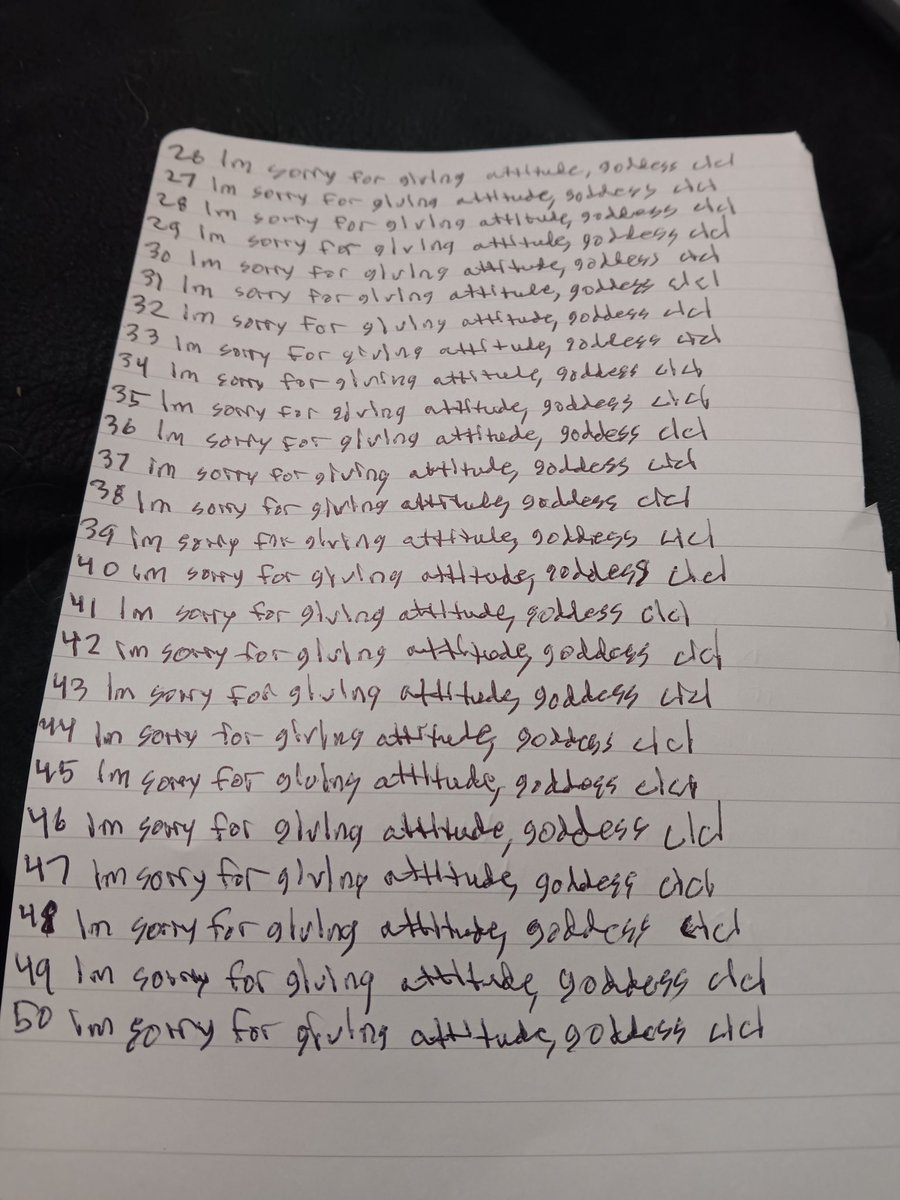 26 Im sorry for giving attitude, goddess cici
27 Im sorry for giving attitude, goddess cici
28 Im sorry for giving attitude, goddess cici
29 Im sorry for giving attitude, goddess cici
30 Im sorry for giving attitude, goddess cici
31 Im sorry for giving attitude, goddess cici
32 im sorry for giving attitude, goddess cici
33 Im sorry for giving attitude, goddess cici
34 Im sorry for giving attitude, goddess cici
35 Im sorry for giving attitude, goddess cici
36 Im sorry for giving attitude, goddess cici
37 im sorry for giving attitude, goddess cici
38 Im sorry for giving attitude, goddess cici
39 im sorry for giving attitude, goddess cici
40 im sorry for giving attitude, goddess cici
41 Im sorry for giving attitude, goddess cici
42 im sorry for giving attitude, goddess cici
43 Im sorry for giving attitude, goddess cici
44 Im sorry for giving attitude, goddess cici
45 Im sorry for giving attitude, goddess cici
46 Im sorry for giving attitude, goddess cici
47 Im sorry for giving attitude, goddess cici
48 Im sorry for giving attitude, goddess cici
49 Im sorry for giving attitude, goddess cici
50 im sorry for giving attitude, goddess cici